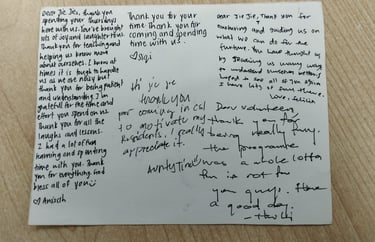 Dear Jie Jie, thank you
spending your Thursdays
here with us. You've brought
lots of joy and laughter to us.
Thank you for teaching and
helping us know more
about ourselves. I know at
times it is tough to handle
us as we are noisy but
thank you for being patient
and understanding. I am
grateful for the time and
effort you spend on us.
Thank you for all the
laughs and lessons.
I had a lot of fun
learning and spending
time with you. Thank
you for everything. God
bless all of you :)
Thank you for your
time. Thank you for
coming and spending
time with us.
hi jie jie
thank you
for coming in
to motivate my
Residents. I really
appreciate it.
Aunty
Dear Jie Jie, Thank you for
and guiding us on
what we can do for the
furture. You have
by
understand ourselves better. I
hoped to see all of you again
I have lots of fun there.
Love,
Dear volunteer
thank you for
being really funy.
the programme
was a whole lotta
fun is not for
you guys. Have
a good day.